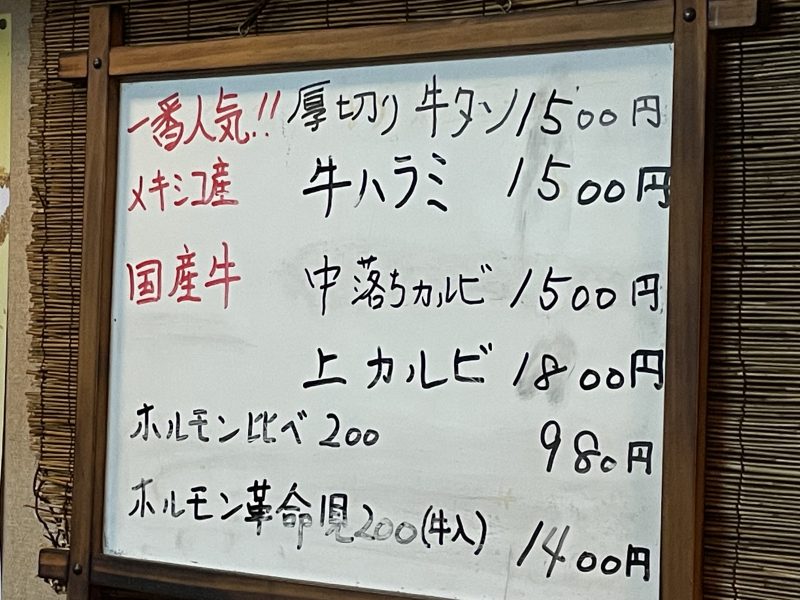 一番人気!! 厚切り 牛タン 1500円
メキシコ産 牛ハラミ 1500円
国産牛 中落ちカルビ 1500円
上カルビ 1800円
ホルモン比べ 200 980円
ホルモン革命 200(牛入) 1400円